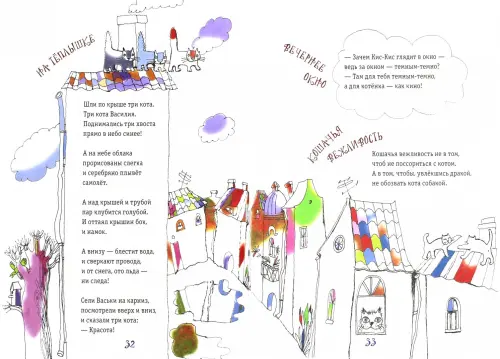 НА ТЁПЛЫШКЕ
Шли по крыше три кота,
Три кота Василия.
Поднимались три хвоста
прямо в небо синее!
А на небе облака
прорисованы слегка
и серебряно плывёт
самолёт.
А над крышей и трубой
пар клубится голубой.
И оттаял крышин бок,
и намок.
А внизу — блестит вода,
и сверкают провода,
и от снега, ото льда —
ни следа!
Сели Васьки на карниз,
посмотрели вверх и вниз,
и сказали три кота:
— Красота!
32
ВЕЧЕРНЕЕ
ОКНО
— Зачем Кис-Кис глядит в окно —
ведь за окном — темным-темно?
— Там для тебя темным-темно,
а для котёнка — как кино!
КОШАЧЬЯ
ВЕЖЛИВОСТЬ
Кошачья вежливость не в том,
чтоб не поссориться с котом.
А в том, чтобы, увлёкшись дракой,
не обозвать кота собакой.
33